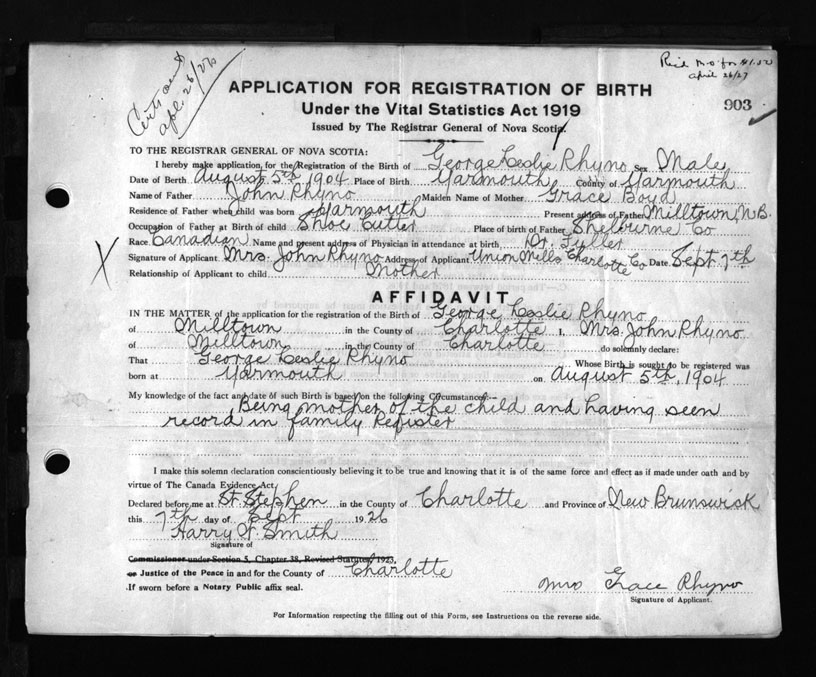 Cert sent
apl. 26/27
Rec'd M.O. for $1.50
april 26/27
APPLICATION FOR REGISTRATION OF BIRTH
Under the Vital Statistics Act 1919
903
Issued by The Registrar General of Nova Scotia.
TO THE REGISTRAR GENERAL OF NOVA SCOTIA:
I hereby make application for the Registration of the Birth of George Leslie Rhyno Sex Male
Date of Birth August 5th 1904 Place of Birth Yarmouth County of Yarmouth
Name of Father John Rhyno Maiden Name of Mother Grace Boyd
Residence of Father when child was born Yarmouth Present address of Father Milltown, N.B.
Occupation of Father at Birth of child Shoe Cutter Place of birth of Father Shelburne Co
Race Canadian Name and present address of Physician in attendance at birth, Dr. Fuller
Signature of Applicant Mrs. John Rhyno Address of Applicant Union Mills Charlotte Co Date Sept 7th
Relationship of Applicant to child Mother
AFFIDAVIT
IN THE MATTER of the application for the registration of the Birth of George Leslie Rhyno
of Milltown in the County of Charlotte I, Mrs. John Rhyno
of Milltown in the County of Charlotte do solemnly declare:
That George Leslie Rhyno Whose Birth is sought to be registered was
born at Yarmouth on August 5th, 1904
My knowledge of the fact and date of such Birth is based on the following Circumstances:
Being mother of the child and having seen
record in family Register
I make this solemn declaration conscientiously believing it to be true and knowing that it is of the same force and effect as if made under oath and by
virtue of The Canada Evidence Act.
Declared before me at St. Stephen in the County of Charlotte and Province of New Brunswick
this 7th day of Sept 1926
Harry W. Smith
Signature of
Commissioner under Section 5, Chapter 38, Revised Statutes, 1923,
or Justice of the Peace in and for the County of Charlotte
If sworn before a Notary Public affix seal.
Mrs Grace Rhyno
Signature of Applicant.
For Information respecting the filling out of this Form, see Instructions on the reverse side.